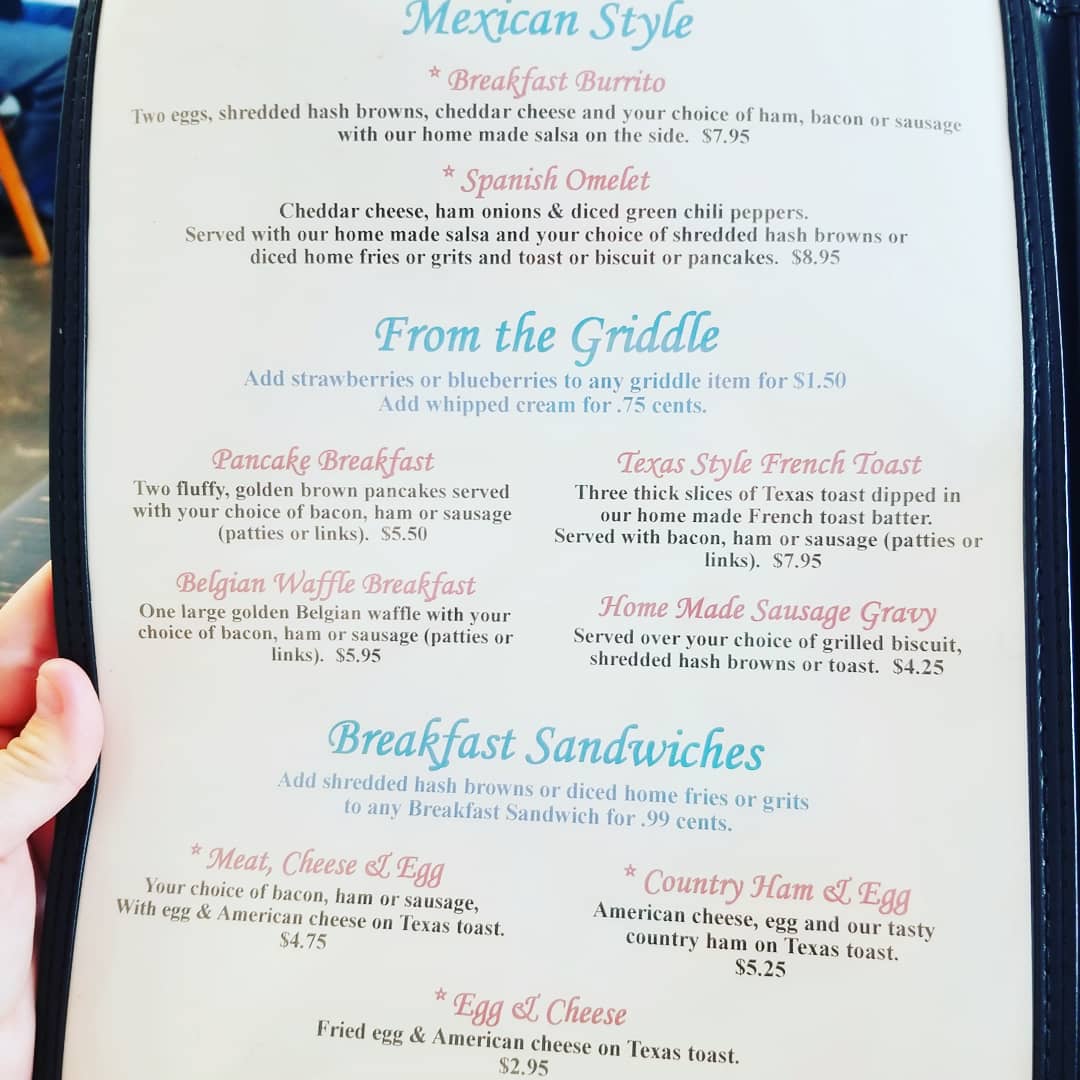 Mexican Style
* Breakfast Burrito
Two eggs, shredded hash browns, cheddar cheese and your choice of ham, bacon or sausage
with our home made salsa on the side. $7.95
* Spanish Omelet
Cheddar cheese, ham onions & diced green chili peppers.
Served with our home made salsa and your choice of shredded hash browns or
diced home fries or grits and toast or biscuit or pancakes. $8.95
From the Griddle
Add strawberries or blueberries to any griddle item for $1.50
Add whipped cream for .75 cents.
Pancake Breakfast
Two fluffy, golden brown pancakes served
with your choice of bacon, ham or sausage
(patties or links). $5.50
Belgian Waffle Breakfast
One large golden Belgian waffle with your
choice of bacon, ham or sausage (patties or
links). $5.95
Texas Style French Toast
Three thick slices of Texas toast dipped in
our home made French toast batter.
Served with bacon, ham or sausage (patties or
links). $7.95
Home Made Sausage Gravy
Served over your choice of grilled biscuit,
shredded hash browns or toast. $4.25
Breakfast Sandwiches
Add shredded hash browns or diced home fries or grits
to any Breakfast Sandwich for .99 cents.
* Meat, Cheese & Egg
Your choice of bacon, ham or sausage,
With egg & American cheese on Texas toast.
$4.75
* Country Ham & Egg
American cheese, egg and our tasty
country ham on Texas toast.
$5.25
* Egg & Cheese
Fried egg & American cheese on Texas toast.
$2.95